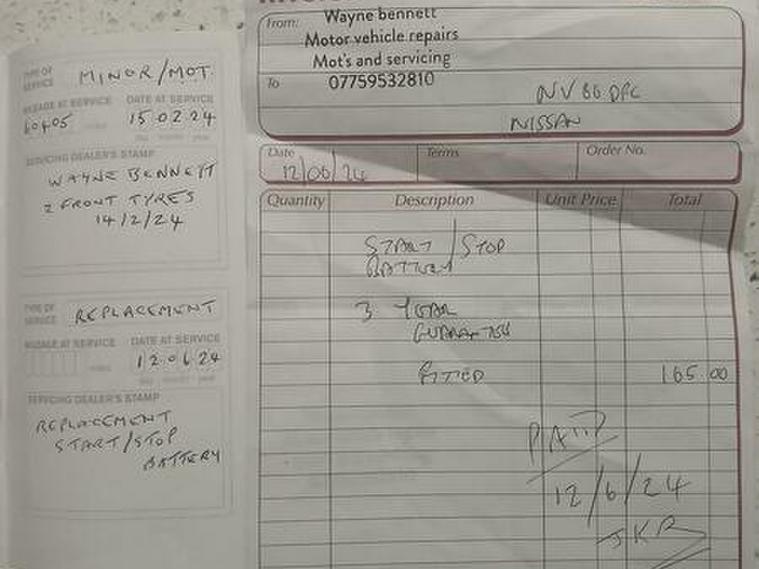 TYPE OF
SERVICE
MINOR/MOT.
MILEAGE AT SERVICE
DATE AT SERVICE
60405
15 02 24
SERVICING DEALER'S STAMP
WAYNE BENNETT
2 FRONT TYRES
14/2/24
TYPE OF
SERVICE
REPLACEMENT
MILEAGE AT SERVICE
DATE AT SERVICE
12.06.24
SERVICING DEALER'S STAMP
REPLACEMENT
START/STOP
BATTERY
From:
Wayne bennett
Motor vehicle repairs
Mot's and servicing
To
07759532810
NISSAN
Date
Terms
Order No.
12/06/24
Quantity
Description
Unit Price
Total
START/STOP
BATTERY
3 YEAR
GUARANTEE
FITTED
165 00
PAID
12/6/24